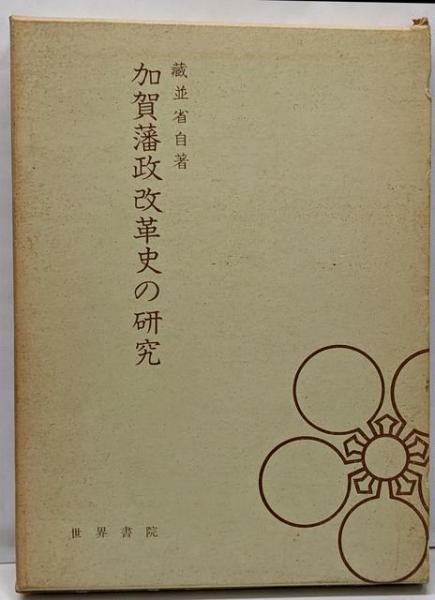 蔵並省自著
加賀藩政改革史の研究
世界書院